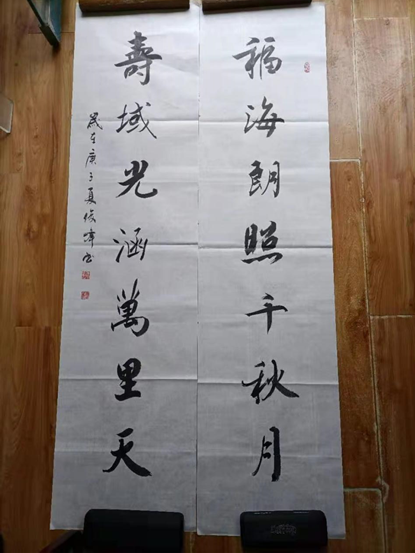 福海朗照千秋月
壽域光涵萬里天
歲在庚子夏俊峰书